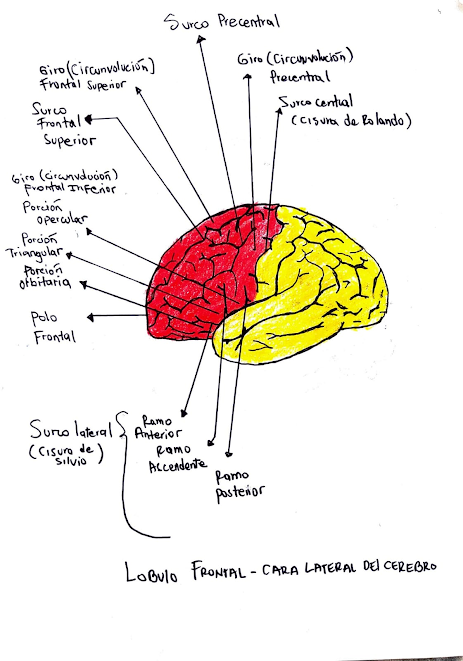 Surco Precentral
Giro (Circunvolución)
Precentral
Giro (Circunvolución)
Frontal Superior
Surco central
(Cisura de Rolando)
Surco
Frontal
Superior
Giro (circunvolución)
Frontal Inferior
Porción
opercular
Porción
Triangular
Porción
orbitaria
Polo
Frontal
Surco lateral
(Cisura de
Silvio)
Ramo
Anterior
Ramo
Accendente
Ramo
Posterior
LOBULO FRONTAL - CARA LATERAL DEL CEREBRO